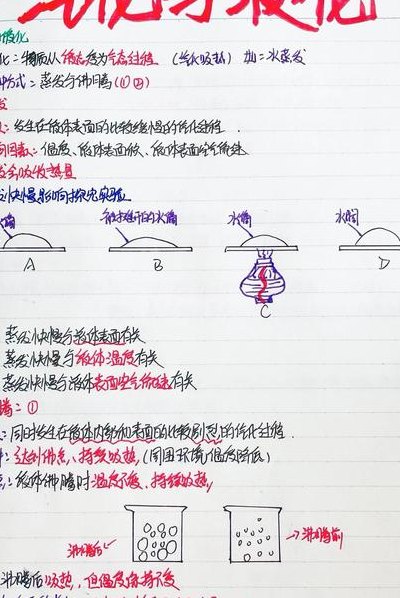 汽化与液化
汽化
化：物质从液态变为气态过程（汽化吸热）如：水蒸发
种方式：蒸发与沸腾（①②）
发
发生在液体表面的比较缓慢的汽化过程．
因素：温度、液体表面积、液体表面空气流速
发会吸收热量
发快慢影响探究实验
水滴
被摊开的水滴
水滴
水滴
A
B
C
D
蒸发快慢与液体表面有关
蒸发快慢与液体温度有关
蒸发快慢与液体表面空气流速有关
腾：①
：同时发生在液体内部和表面的比较剧烈的汽化过程．
：达到沸点、持续吸热（周围环境温度降低）
：液体沸腾时温度不变、持续吸热
沸腾后
沸腾前
沸腾后吸热，但温度保持不变